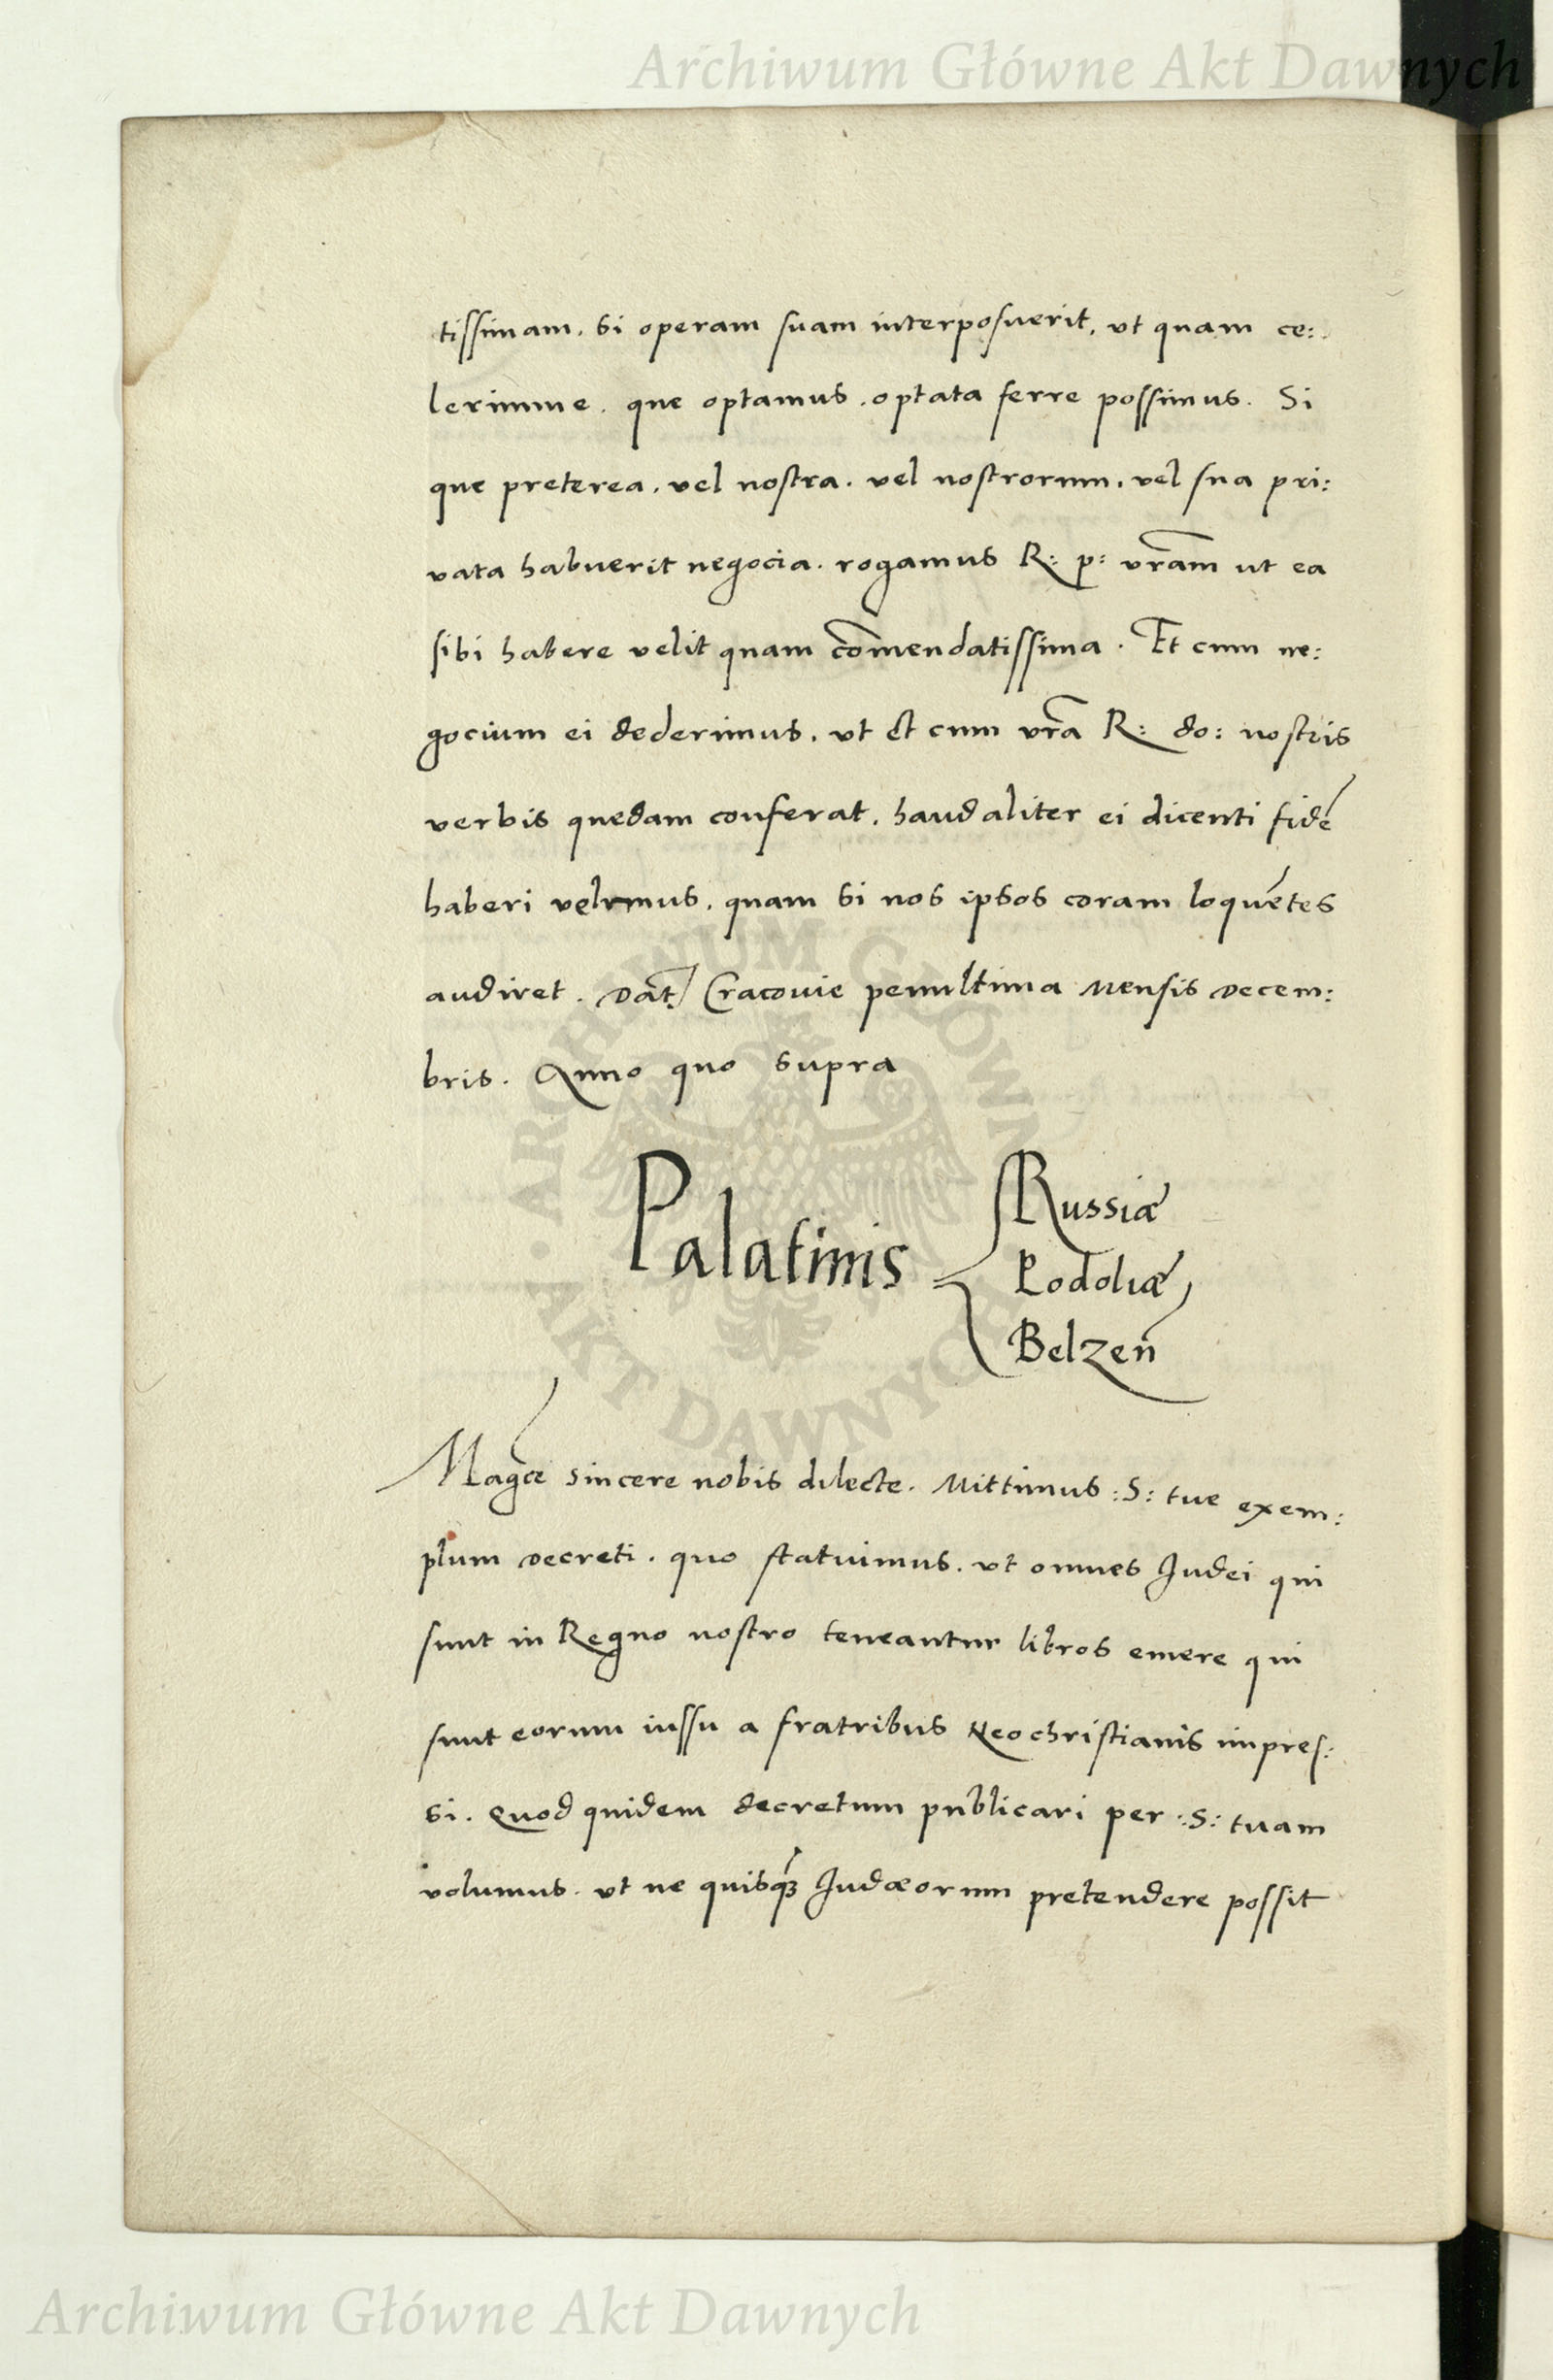 Archiwum Główne Akt Dawnych
tissimam. si operam suam interposuerit, vt quam ce:
lerimme. que optamus. optata ferre possimus. Si
que preterea, vel nostra. vel nostrorum. vel sua pri:
vata habuerit negocia. rogamus R: p: vram ut ea
sibi habere velit quam comendatissima. Et cum ne:
gocium ei dederimus. vt et cum vra R: do: nostris
verbis quedam conferat. haud aliter ei dicenti fidē
haberi velimus. quam si nos ipsos coram loquētes
audiret. Dat Cracovie penultima Mensis Decem:
bris. Anno quo supra
Palatinis
Russiæ
Podoliæ
Belzen
Magce sincere nobis dilecte. Mittimus :S: tue exem:
plum decreti. quo statuimus. vt omnes Iudei qui
sunt in Regno nostro teneantur libros emere qui
sunt eorum iussu a fratribus Neochristianis impres:
si. Quod quidem decretum publicari per :S: tuam
volumus. vt ne quisqȝ Iudæorum pretendere possit
ARCHIWUM GŁÓWNE AKT DAWNYCH
Archiwum Główne Akt Dawnych